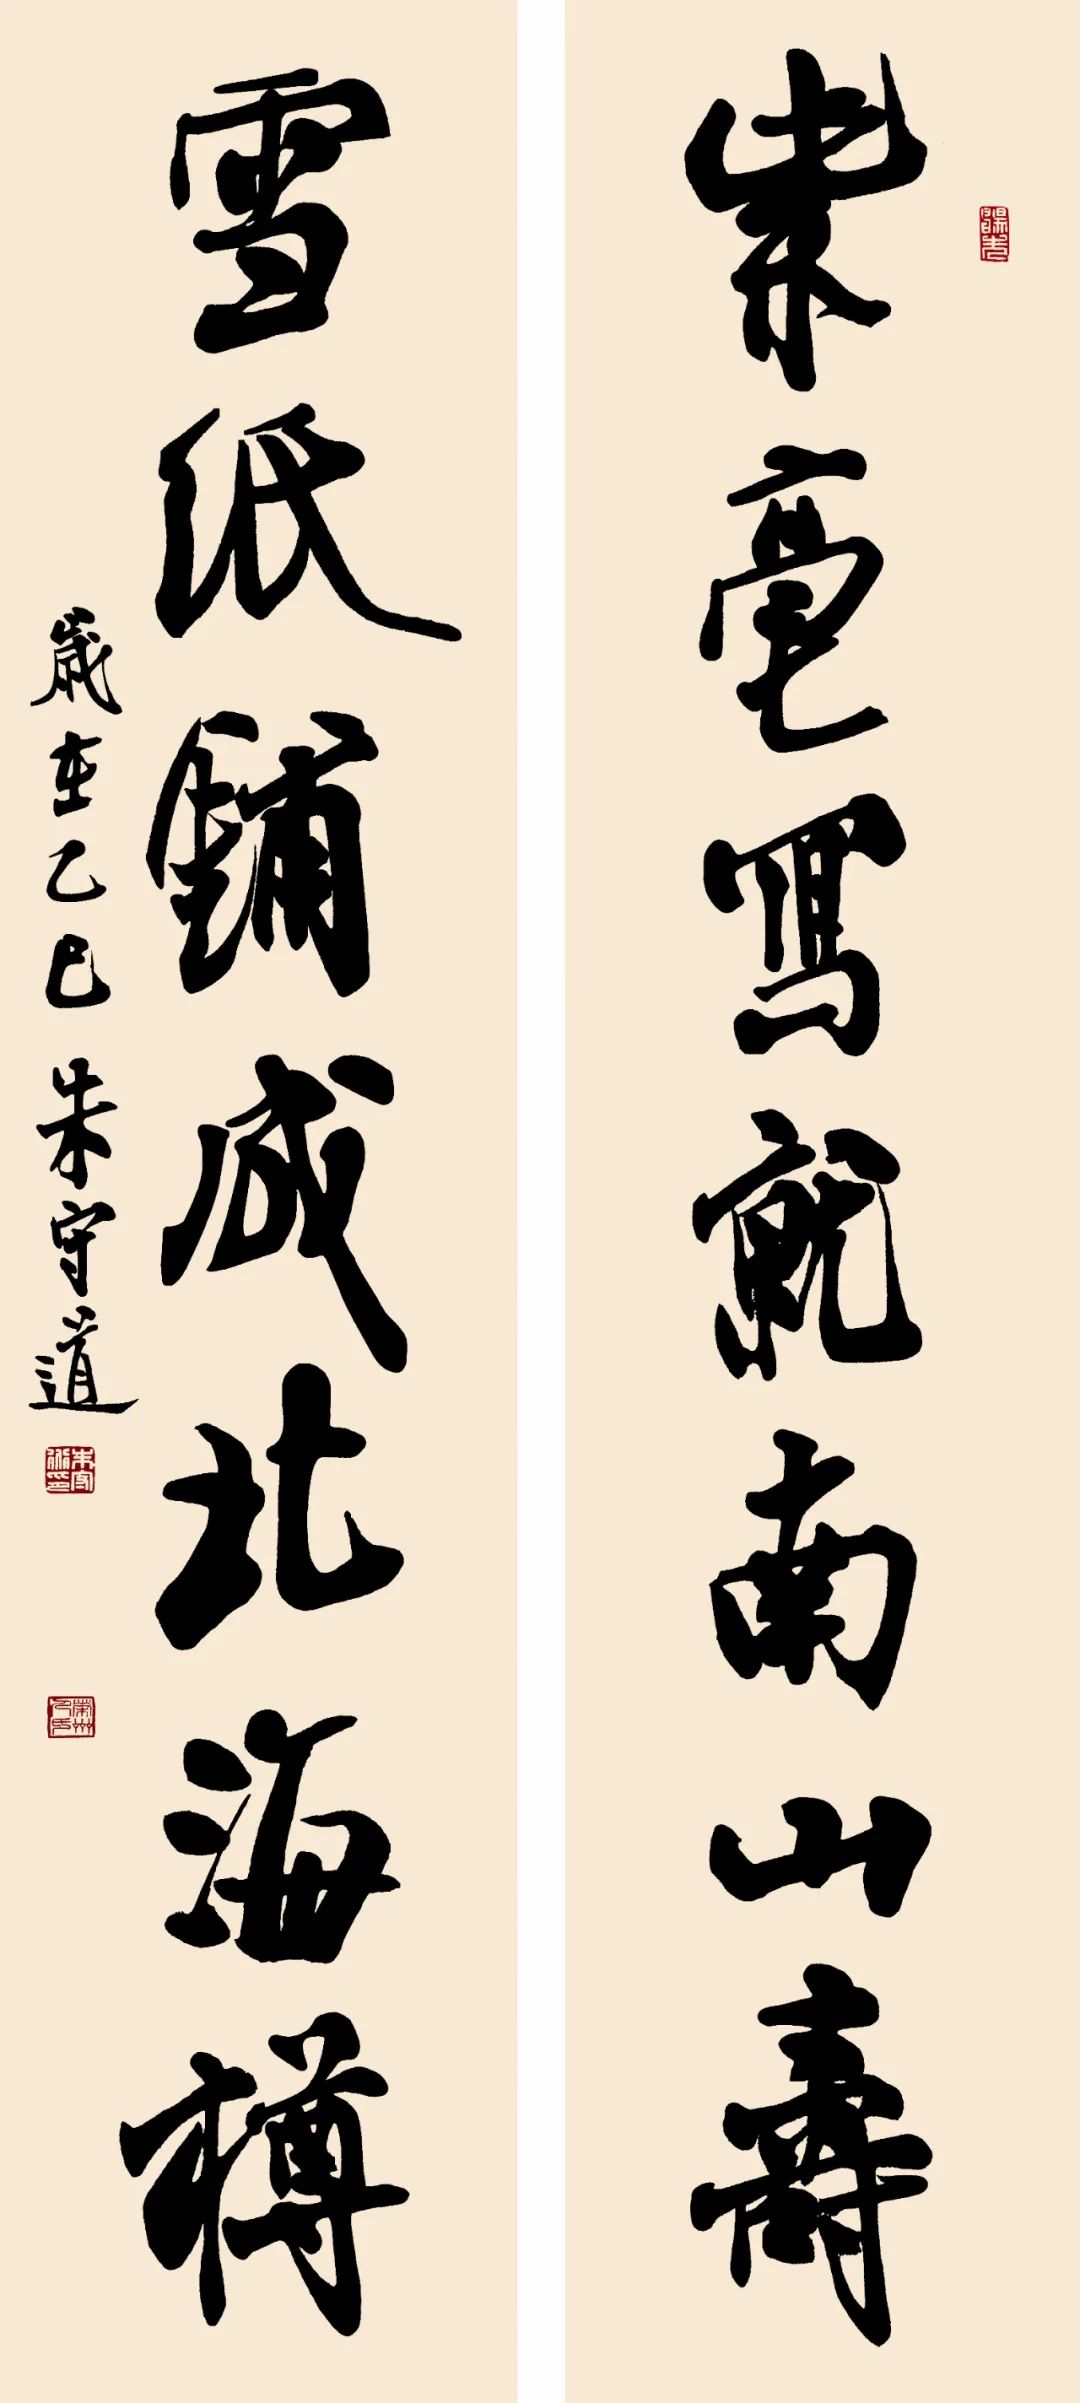 紫毫寫就南山壽
雪紙鋪成北海樽
歲在乙巳朱守道